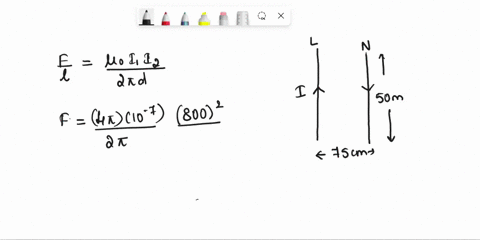 F/l = μ0 I1 I2 / 2πd
F = (4π)(10^-7) (800)^2 / 2π
L N
I
50m
75cm